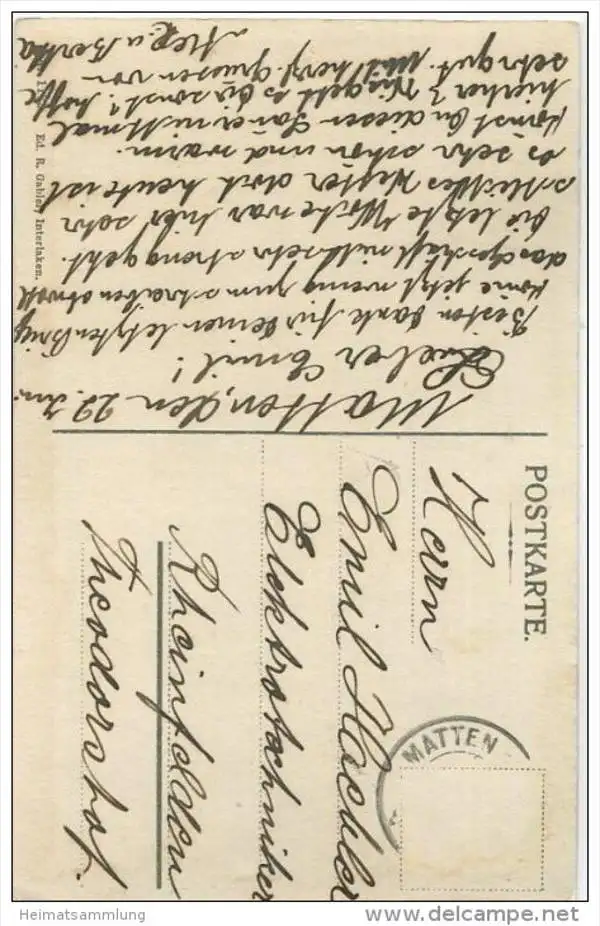 Matten, den 22. Juni
Lieber Emil!
Besten Dank für deinen letzten Brief
kome jetzt wenig zum schreiben obwohl
das Geschäft nicht sehr streng geht.
die letzte Woche war hier sehr
schlechtes Wetter doch heute ist
es sehr schön und warm.
komst du diesen Somer nicht mal
hierher? Wie geht es dir sonst? hoffe
sehr gut. Mit herzl. Grüssen von
Alex. u Bertha
Ed. R. Gabler, Interlaken.
POSTKARTE.
Herrn
Emil Hächler
Elektrotechniker
Rheinfelden
Theodorshof.
MATTEN
Heimatsammlung
www.delcampe.net